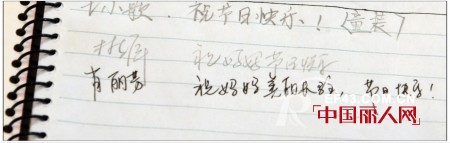 小歌. 祝节日快乐!(童装)
祝妈妈节日快乐
肖丽芳 祝妈妈美丽永驻,节日快乐!
中国丽人网